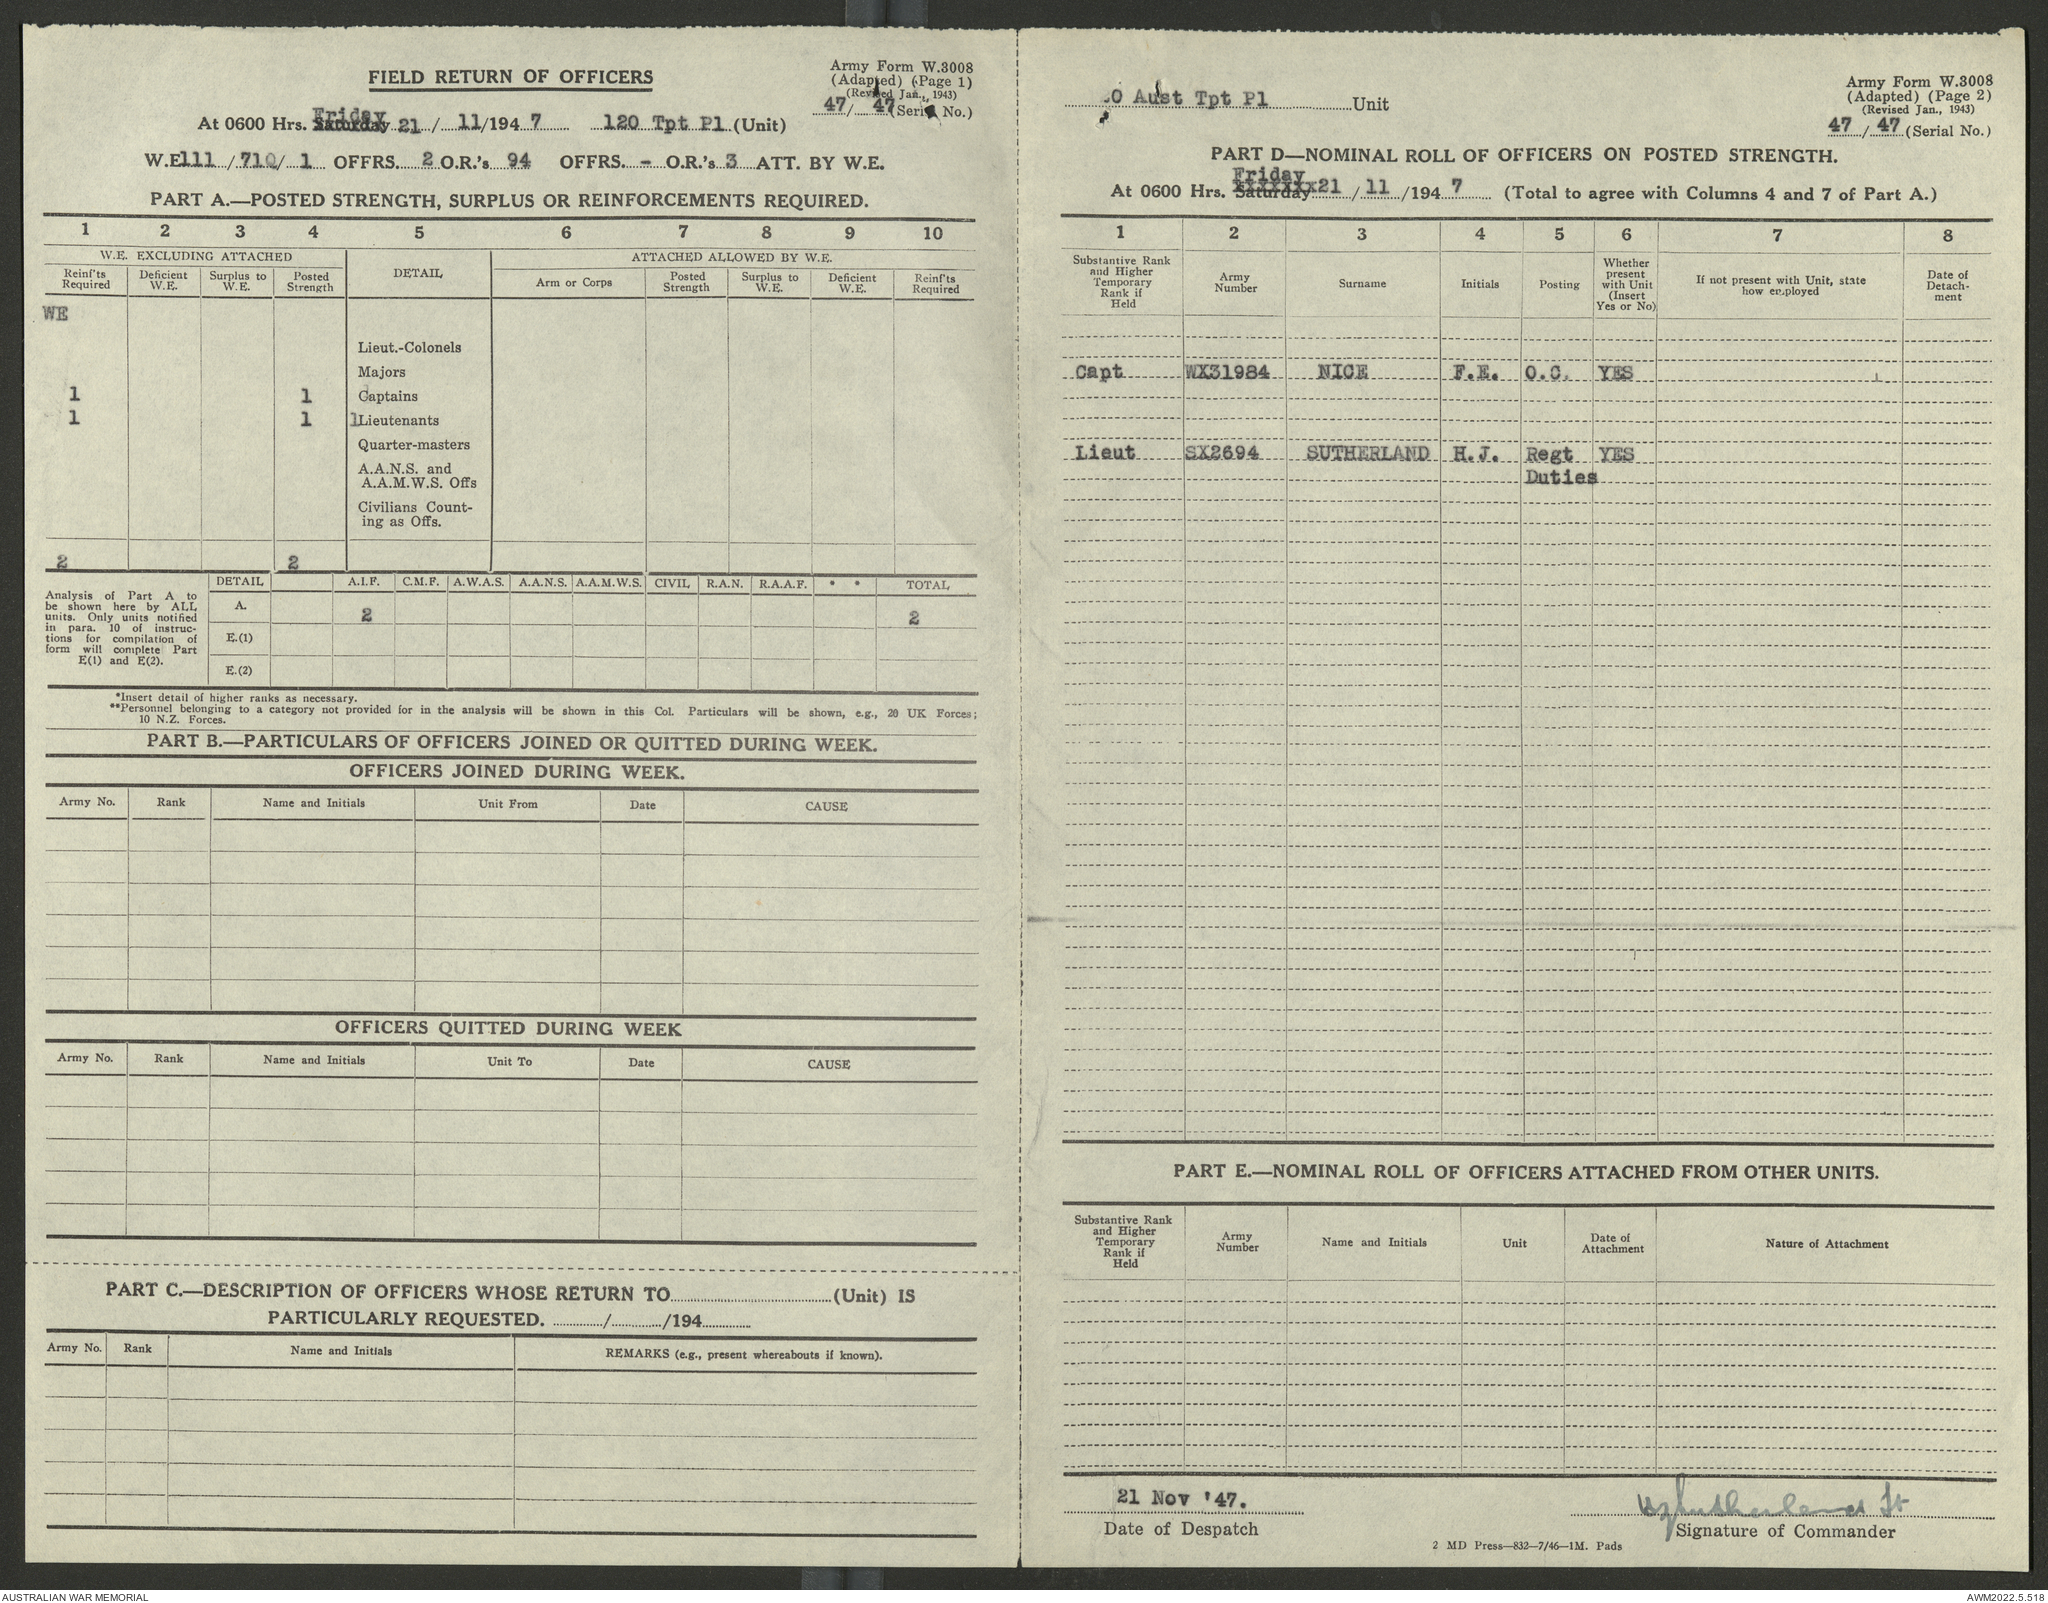 FIELD RETURN OF OFFICERS
Army Form W.3008
(Adapted) (Page 1)
(Revised Jan., 1943)
47/ 47 (Serial No.)
Friday
At 0600 Hrs. Saturday 21 / 11/194 7 120 Tpt Pl (Unit)
W.E. 111 /710/ 1 OFFRS. 2 O.R.'s 94 OFFRS. - O.R.'s 3 ATT. BY W.E.
PART A.—POSTED STRENGTH, SURPLUS OR REINFORCEMENTS REQUIRED.
1 2 3 4 5 6 7 8 9 10
W.E. EXCLUDING ATTACHED DETAIL ATTACHED ALLOWED BY W.E.
Reinf'ts Required Deficient W.E. Surplus to W.E. Posted Strength Arm or Corps Posted Strength Surplus to W.E. Deficient W.E. Reinf'ts Required
WE
Lieut.-Colonels
Majors
1 1 Captains
1 1 1Lieutenants
Quarter-masters
A.A.N.S. and
A.A.M.W.S. Offs
Civilians Count-
ing as Offs.
2 2
DETAIL A.I.F. C.M.F. A.W.A.S. A.A.N.S. A.A.M.W.S. CIVIL R.A.N. R.A.A.F. * * TOTAL
Analysis of Part A to
be shown here by ALL
units. Only units notified
in para. 10 of instruc-
tions for compilation of
form will complete Part
E(1) and E(2).
A. 2 2
E.(1)
E.(2)
*Insert detail of higher ranks as necessary.
**Personnel belonging to a category not provided for in the analysis will be shown in this Col. Particulars will be shown, e.g., 20 UK Forces;
10 N.Z. Forces.
PART B.—PARTICULARS OF OFFICERS JOINED OR QUITTED DURING WEEK.
OFFICERS JOINED DURING WEEK.
Army No. Rank Name and Initials Unit From Date CAUSE
OFFICERS QUITTED DURING WEEK
Army No. Rank Name and Initials Unit To Date CAUSE
PART C.—DESCRIPTION OF OFFICERS WHOSE RETURN TO (Unit) IS
PARTICULARLY REQUESTED. / /194
Army No. Rank Name and Initials REMARKS (e.g., present whereabouts if known).
0 Aust Tpt Pl Unit
Army Form W.3008
(Adapted) (Page 2)
(Revised Jan., 1943)
47 / 47 (Serial No.)
PART D—NOMINAL ROLL OF OFFICERS ON POSTED STRENGTH.
Friday
At 0600 Hrs. Saturday 21 / 11 /194 7 (Total to agree with Columns 4 and 7 of Part A.)
1 2 3 4 5 6 7 8
Substantive Rank and Higher Temporary Rank if Held Army Number Surname Initials Posting Whether present with Unit (Insert Yes or No) If not present with Unit, state how employed Date of Detach-ment
Capt WX31984 NICE F.E. O.C. YES
Lieut SX2694 SUTHERLAND H.J. Regt YES
Duties
PART E.—NOMINAL ROLL OF OFFICERS ATTACHED FROM OTHER UNITS.
Substantive Rank and Higher Temporary Rank if Held Army Number Name and Initials Unit Date of Attachment Nature of Attachment
21 Nov '47. HJSutherland Lt
Date of Despatch Signature of Commander
2 MD Press—832—7/46—1M. Pads
AUSTRALIAN WAR MEMORIAL AWM2022.5.518